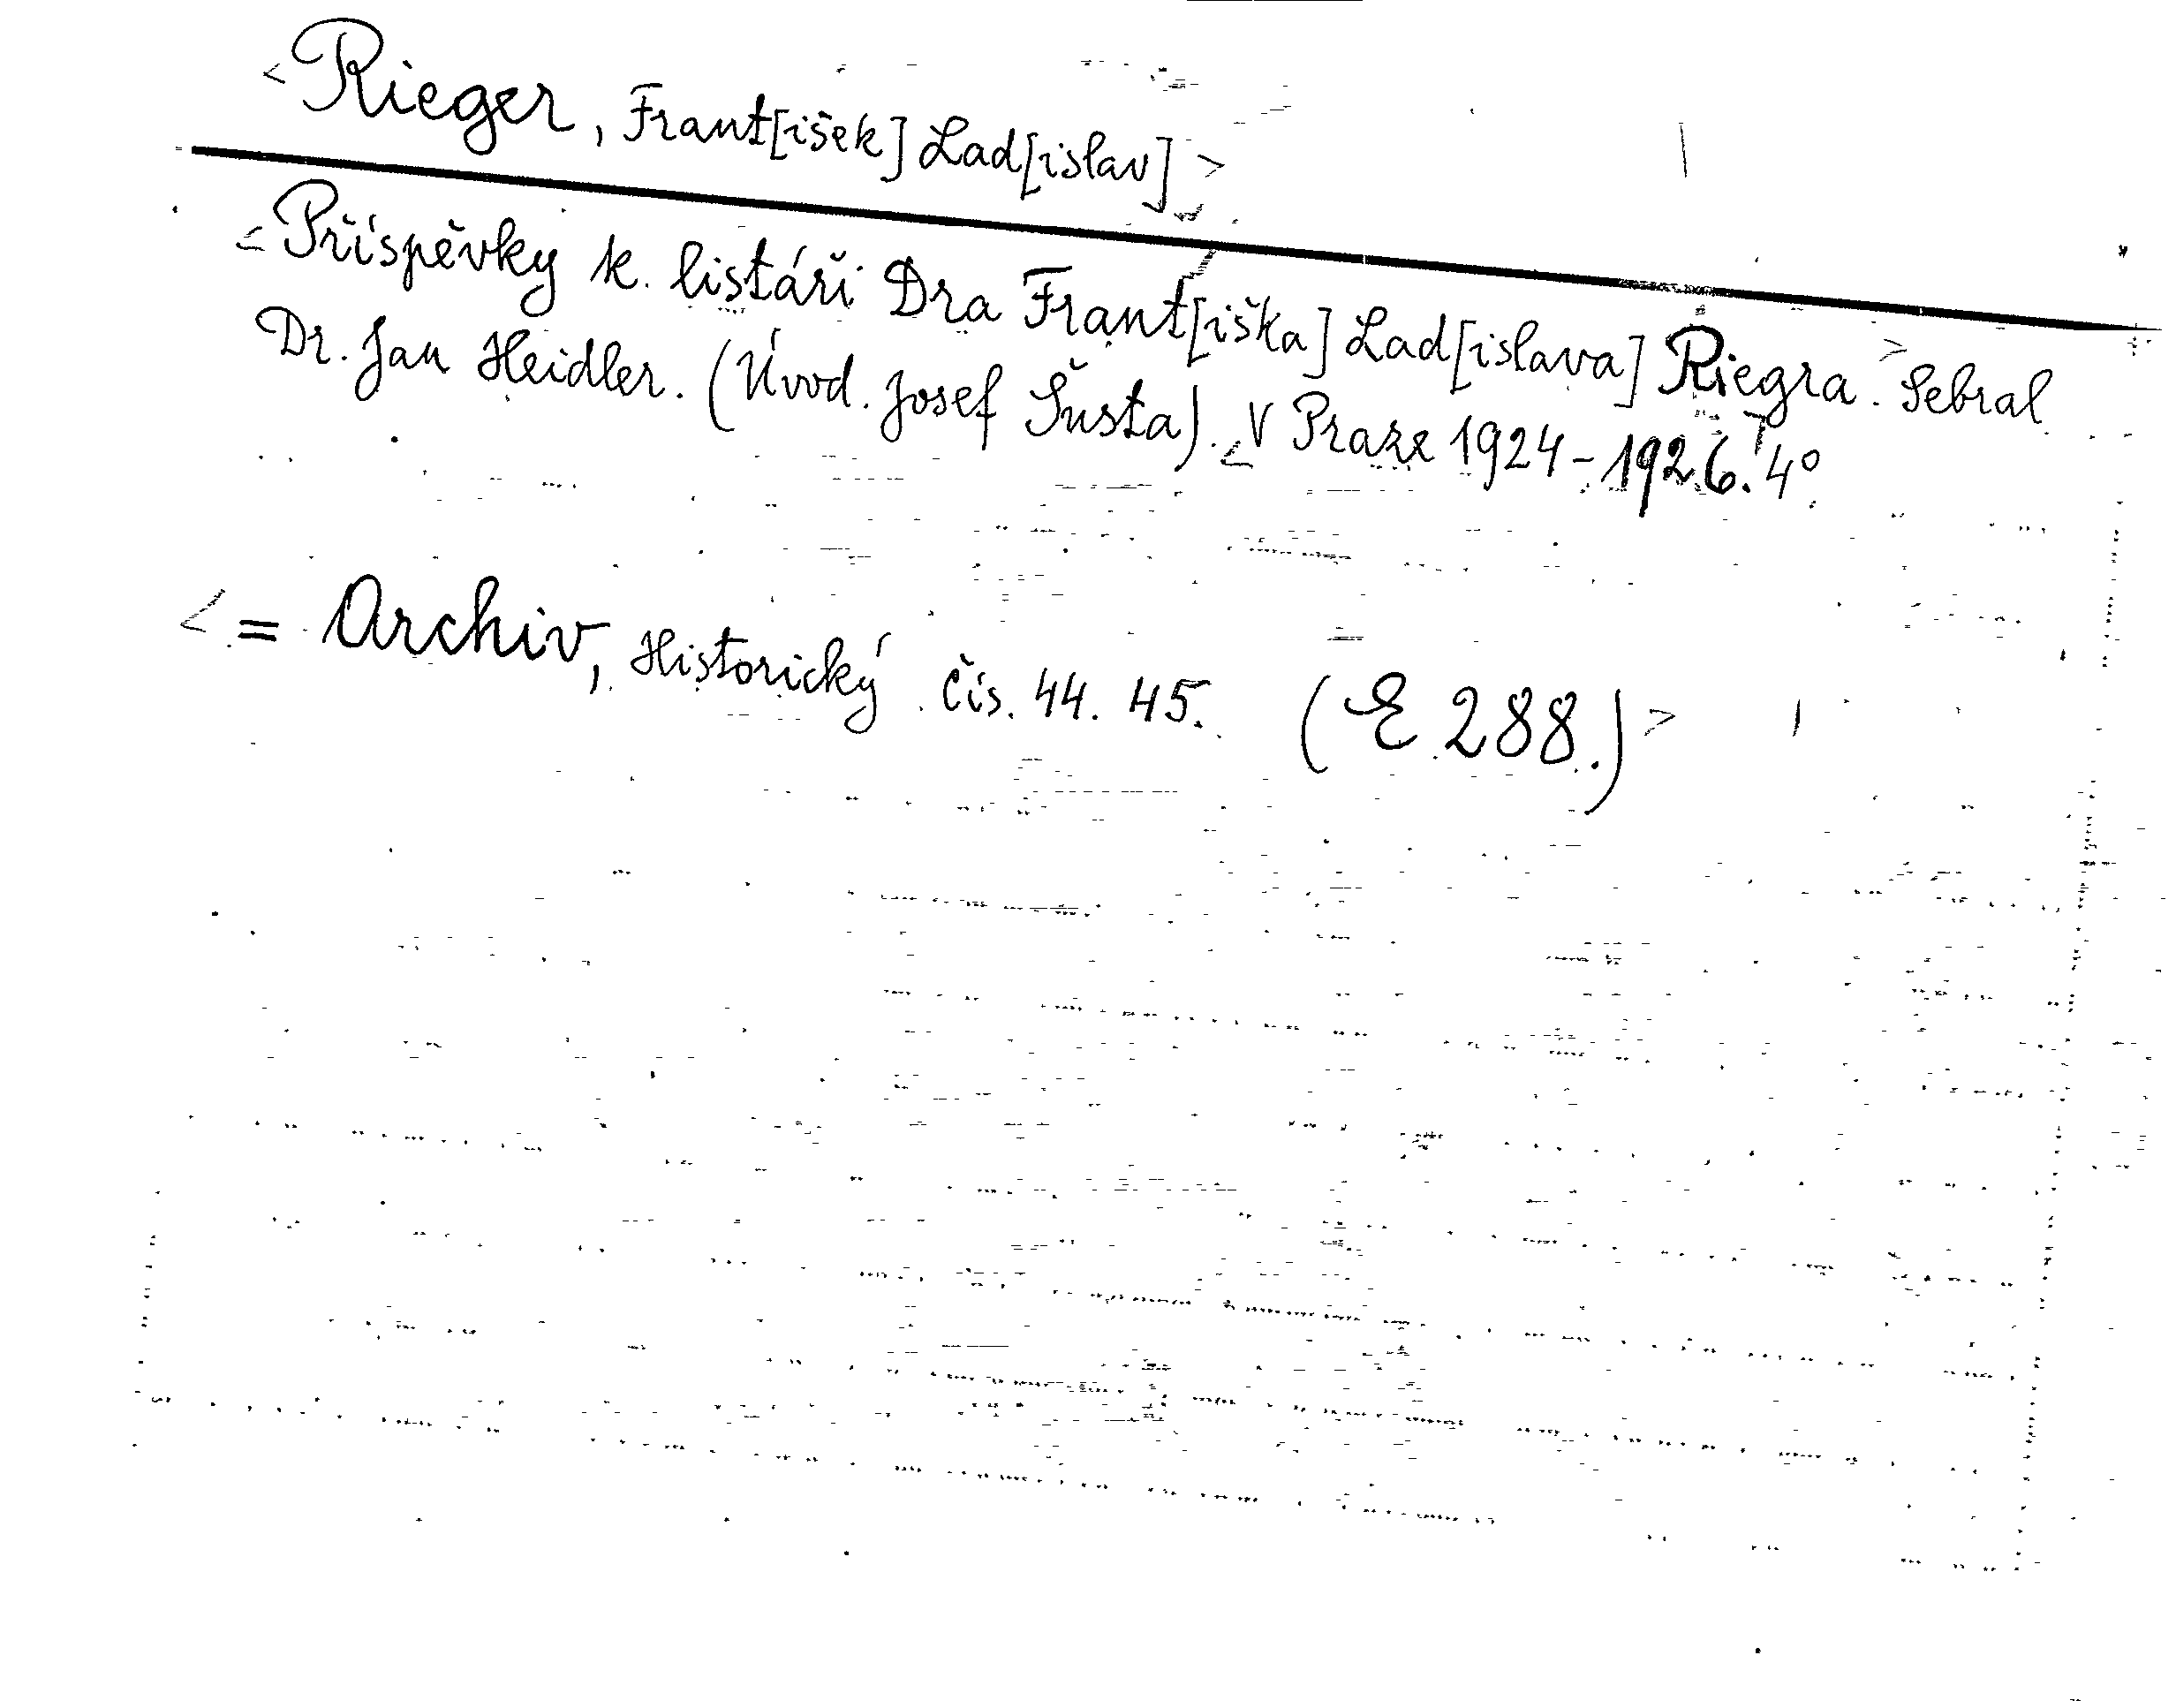 <Rieger, Frant[išek] Lad[islav]>
<Příspěvky k listáři Dra Frant[iška] Lad[islava] Riegra.> Sebral
Dr. Jan Heidler. (Úvod. Josef Šusta). <V Praze 1924-1926. 4°
<= Archiv, Historický čís. 44. 45. (E 288.)>